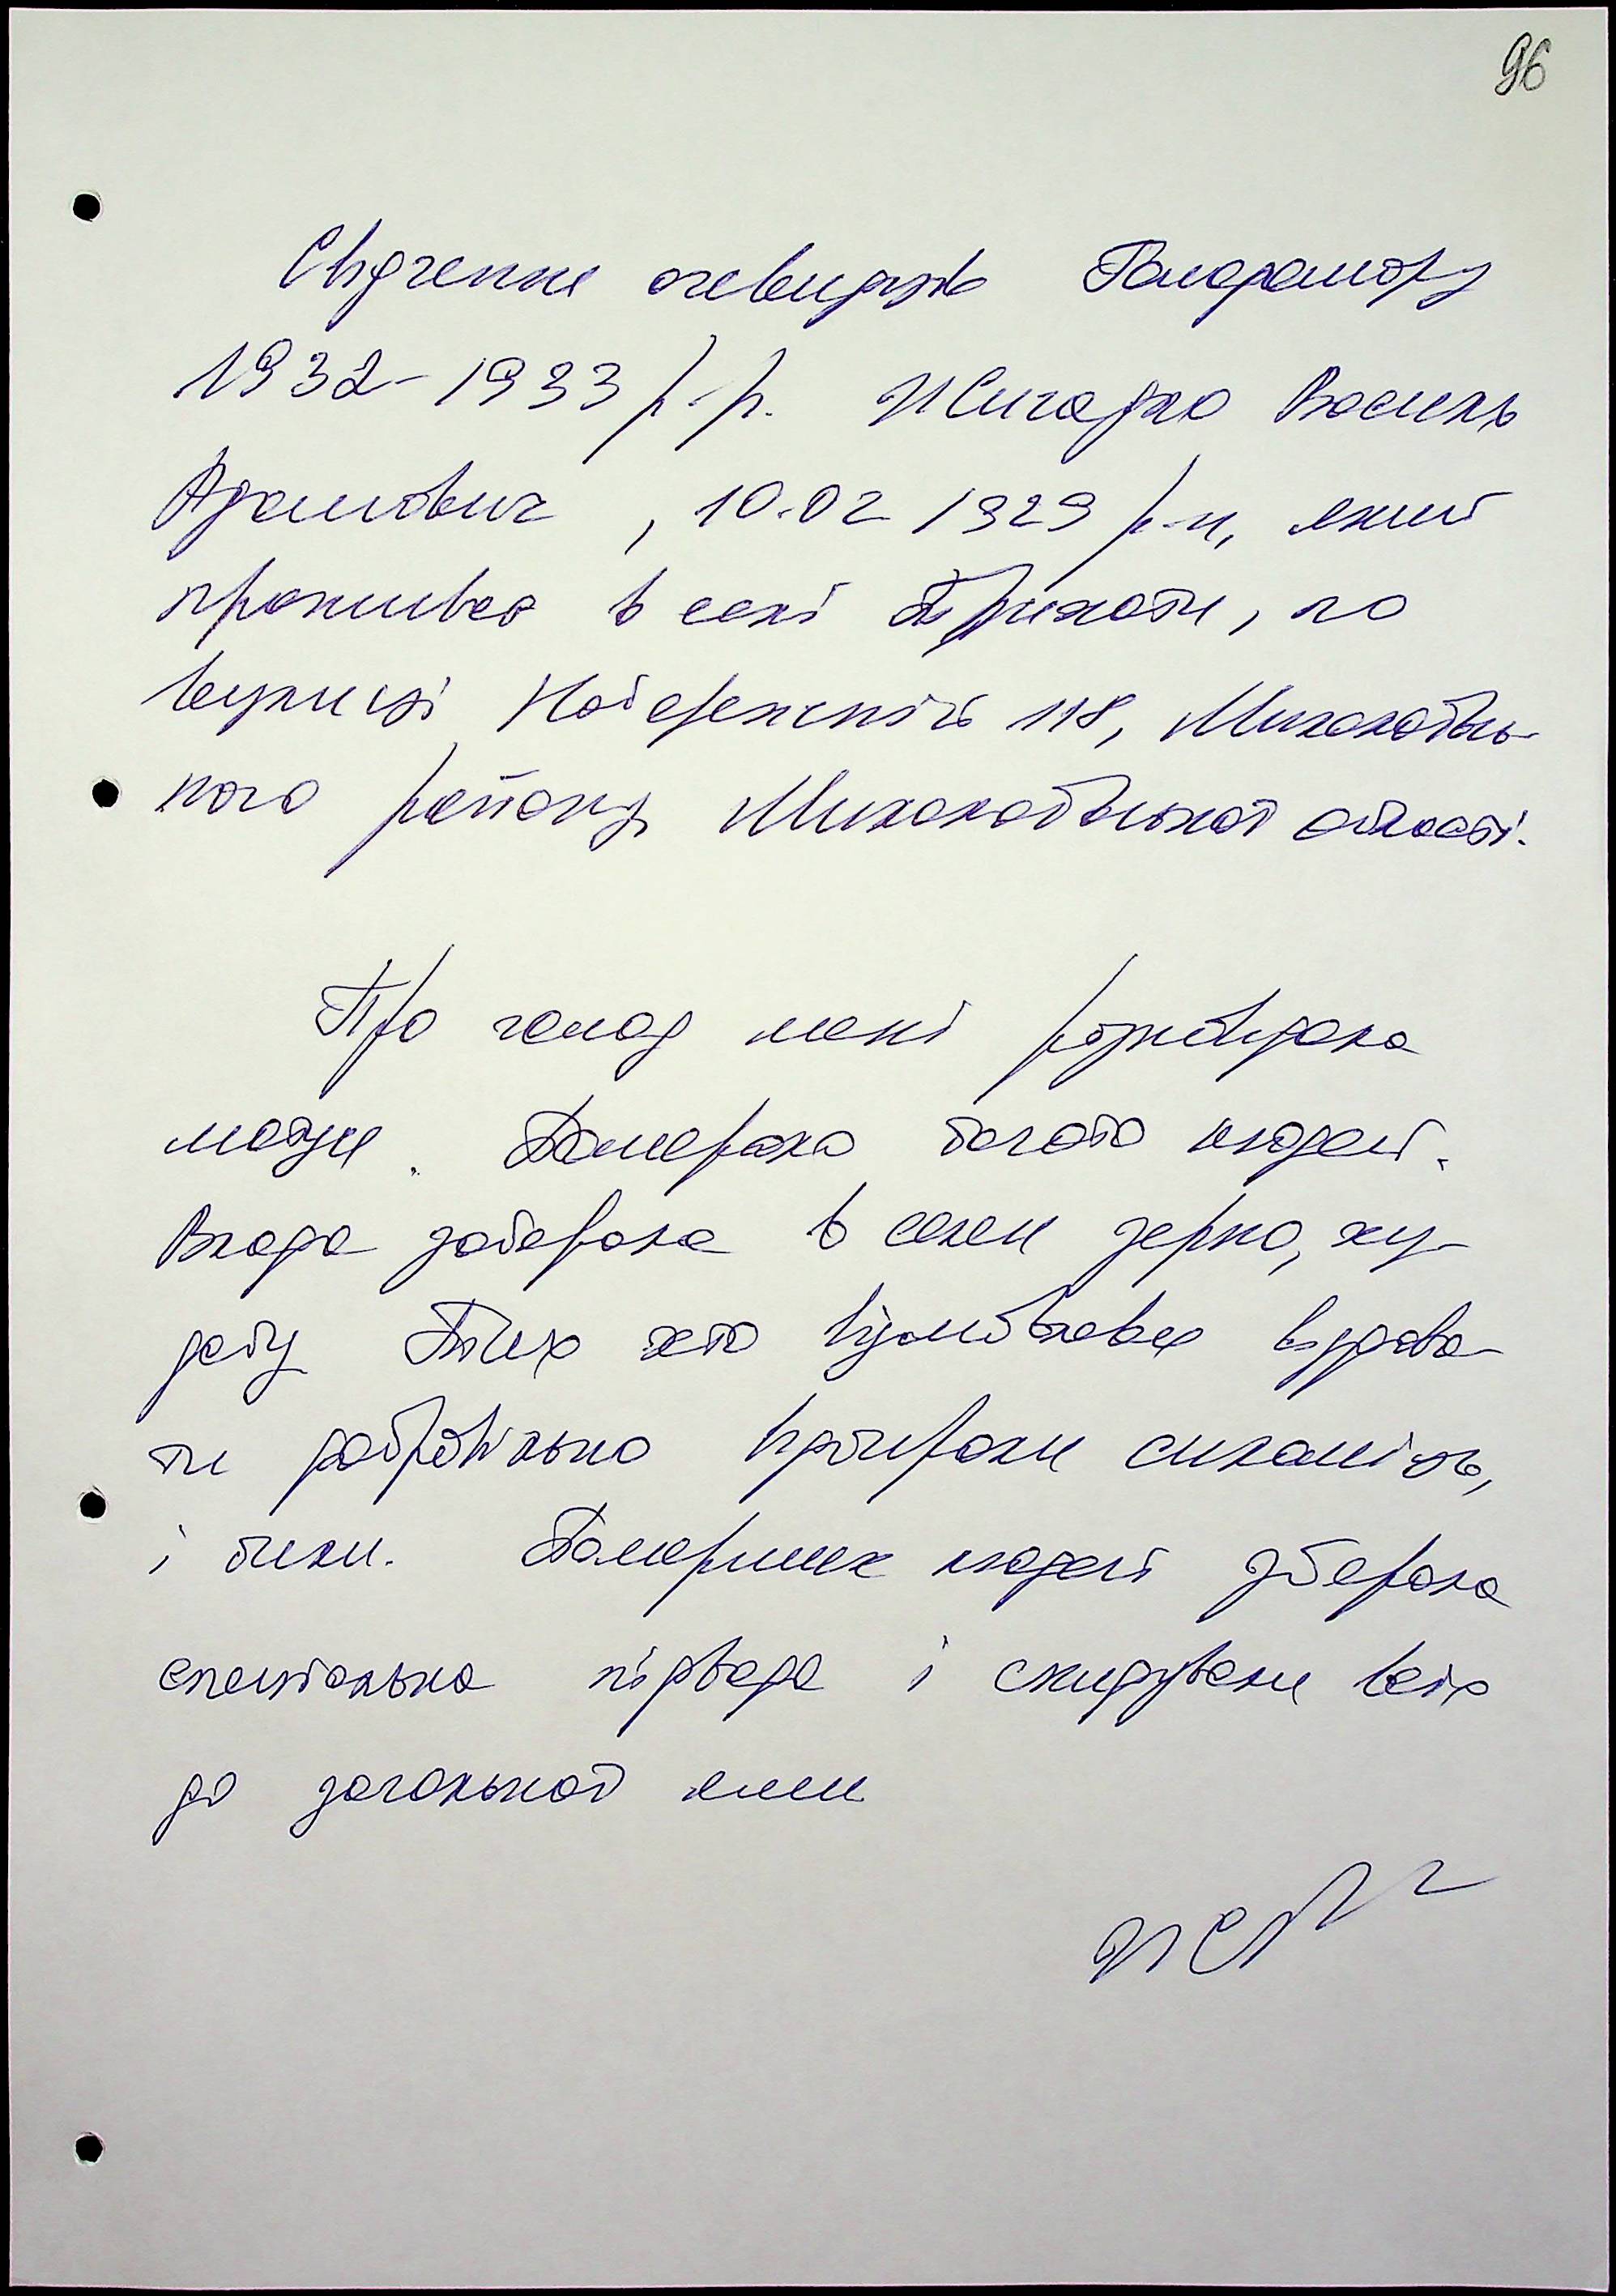 96
Свідчення очевидців Голодомору
1932-1933 р.р. Жигадло Василь
Адамович, 10.02 1929 р.н, який
проживає в селі Трихати, по
вулиці Набережній 118, Миколаївсь-
кого району Миколаївської області.
Про голод мені розповідала
мати. Померло багато людей.
Влада забирала в селян зерно, ху-
добу Тих хто відмовлявся віддава-
ти добровільно вривали силоміць,
і били. Померших людей збирала
спеціальна підвода і скидували всіх
до загальної ями